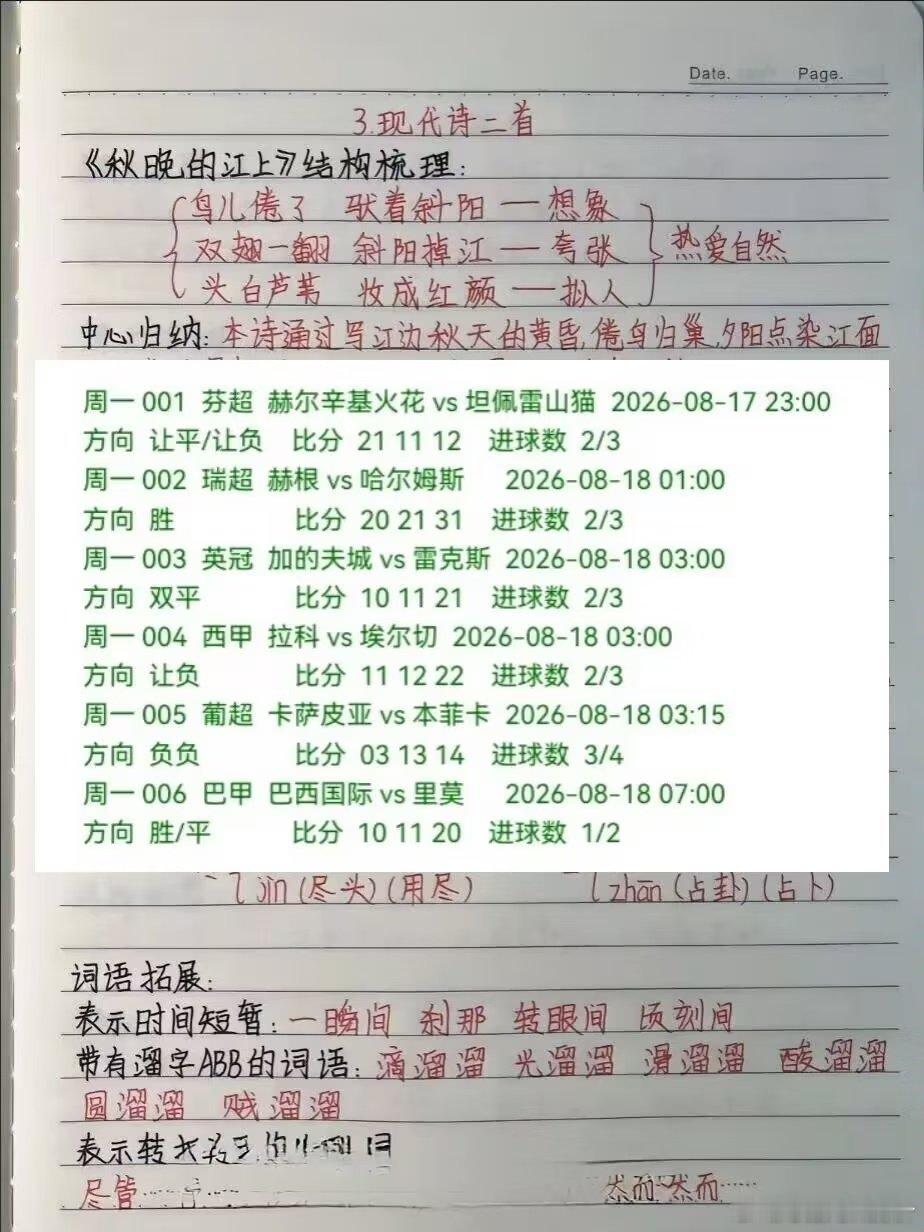 Date. Page.
3.现代诗二首
《秋晚的江上》结构梳理:
鸟儿倦了 驮着斜阳 — 想象
双翅一翻 斜阳掉江 — 夸张
热爱自然
头白芦苇 妆成红颜 — 拟人
中心归纳: 本诗通过写江边秋天的黄昏,倦鸟归巢,夕阳点染江面
周一 001 芬超 赫尔辛基火花 vs 坦佩雷山猫 2026-08-17 23:00
方向 让平/让负 比分 21 11 12 进球数 2/3
周一 002 瑞超 赫根 vs 哈尔姆斯 2026-08-18 01:00
方向 胜 比分 20 21 31 进球数 2/3
周一 003 英冠 加的夫城 vs 雷克斯 2026-08-18 03:00
方向 双平 比分 10 11 21 进球数 2/3
周一 004 西甲 拉科 vs 埃尔切 2026-08-18 03:00
方向 让负 比分 11 12 22 进球数 2/3
周一 005 葡超 卡萨皮亚 vs 本菲卡 2026-08-18 03:15
方向 负负 比分 03 13 14 进球数 3/4
周一 006 巴甲 巴西国际 vs 里莫 2026-08-18 07:00
方向 胜/平 比分 10 11 20 进球数 1/2
jìn (尽头) (用尽) zhān (占卦) (占卜)
词语拓展:
表示时间短暂: 一瞬间 刹那 转眼间 顷刻间
带有溜字ABB的词语: 滴溜溜 光溜溜 滑溜溜 酸溜溜
圆溜溜 贼溜溜
表示转
尽管…… 然而 然而……